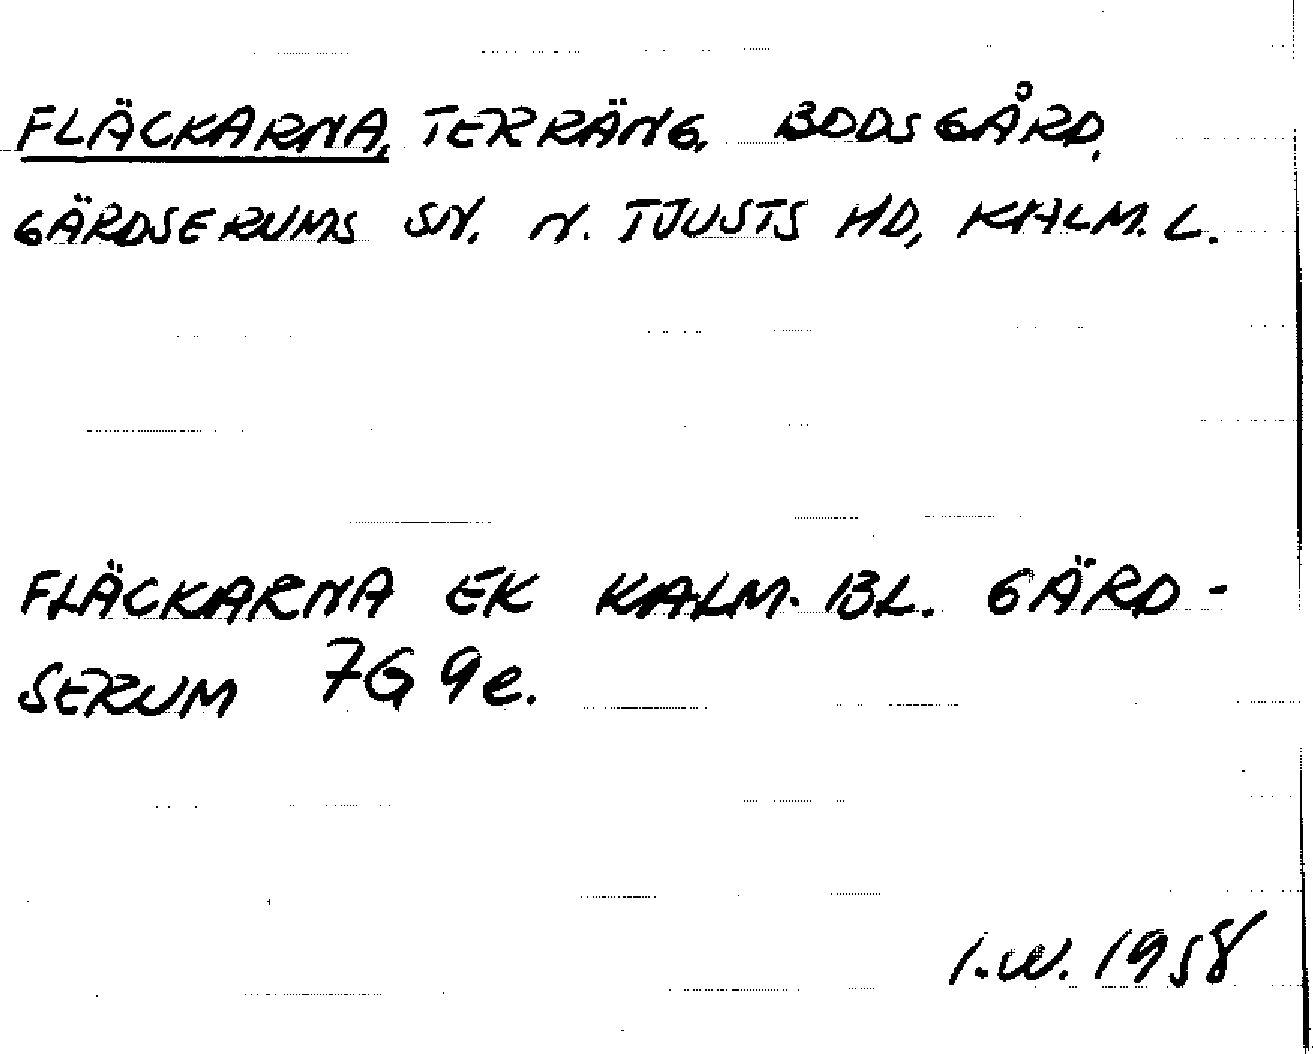 FLÄCKARNA, TERRÄNG, BODSGÅRD,
GÄRDSERUMS SN. N. TJUSTS HD, KALM. L.
FLÄCKARNA EK KALM. BL. GÄRD-
SERUM 7G 9e.
I.W. 1958